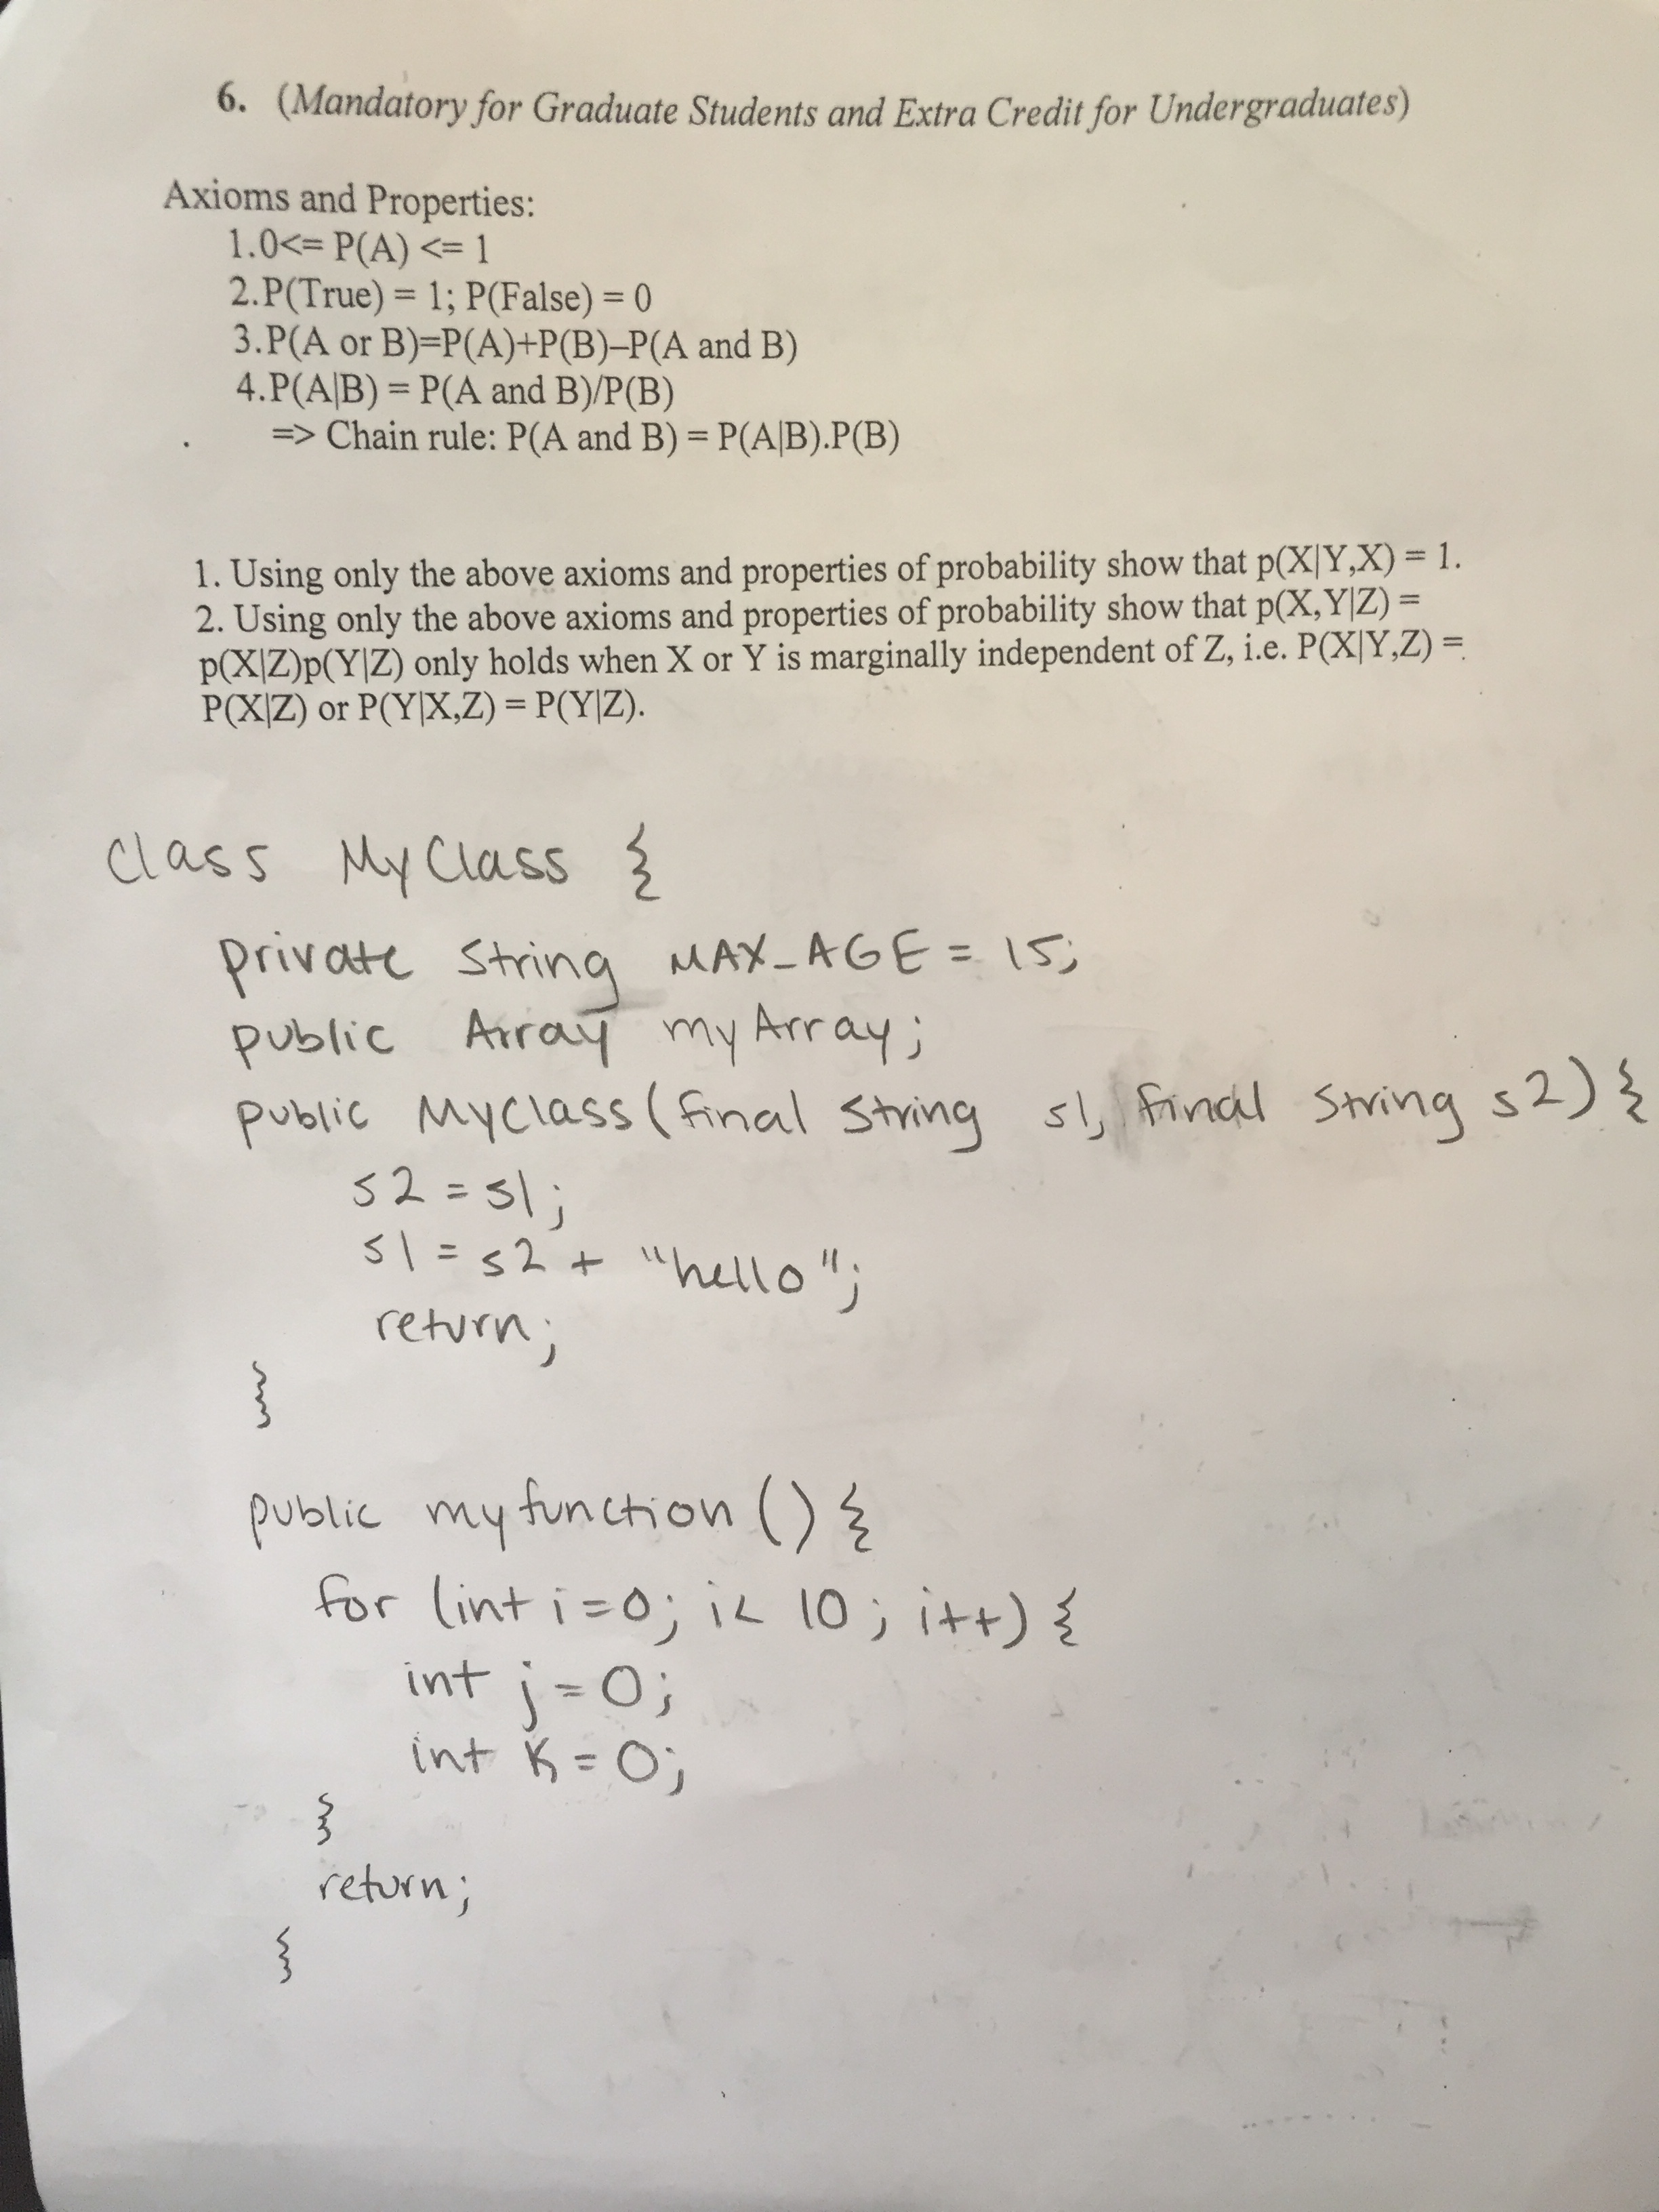 6. (Mandatory for Graduate Students and Extra Credit for Undergraduates)
Axioms and Properties:
1.0<= P(A) <= 1
2.P(True) = 1; P(False) = 0
3.P(A or B)=P(A)+P(B)–P(A and B)
4.P(A|B) = P(A and B)/P(B)
=> Chain rule: P(A and B) = P(A|B).P(B)
1. Using only the above axioms and properties of probability show that p(X|Y,X) = 1.
2. Using only the above axioms and properties of probability show that p(X,Y|Z) =
p(X|Z)p(Y|Z) only holds when X or Y is marginally independent of Z, i.e. P(X|Y,Z) =
P(X|Z) or P(Y|X,Z) = P(Y|Z).
class MyClass {
private String MAX_AGE = 15;
public Array myArray;
public MyClass(final String s1, final String s2) {
s2 = s1;
s1 = s2 + "hello";
return;
}
public myfunction () {
for (int i=0; i< 10; i++) {
int j=0;
int k=0;
}
return;
}